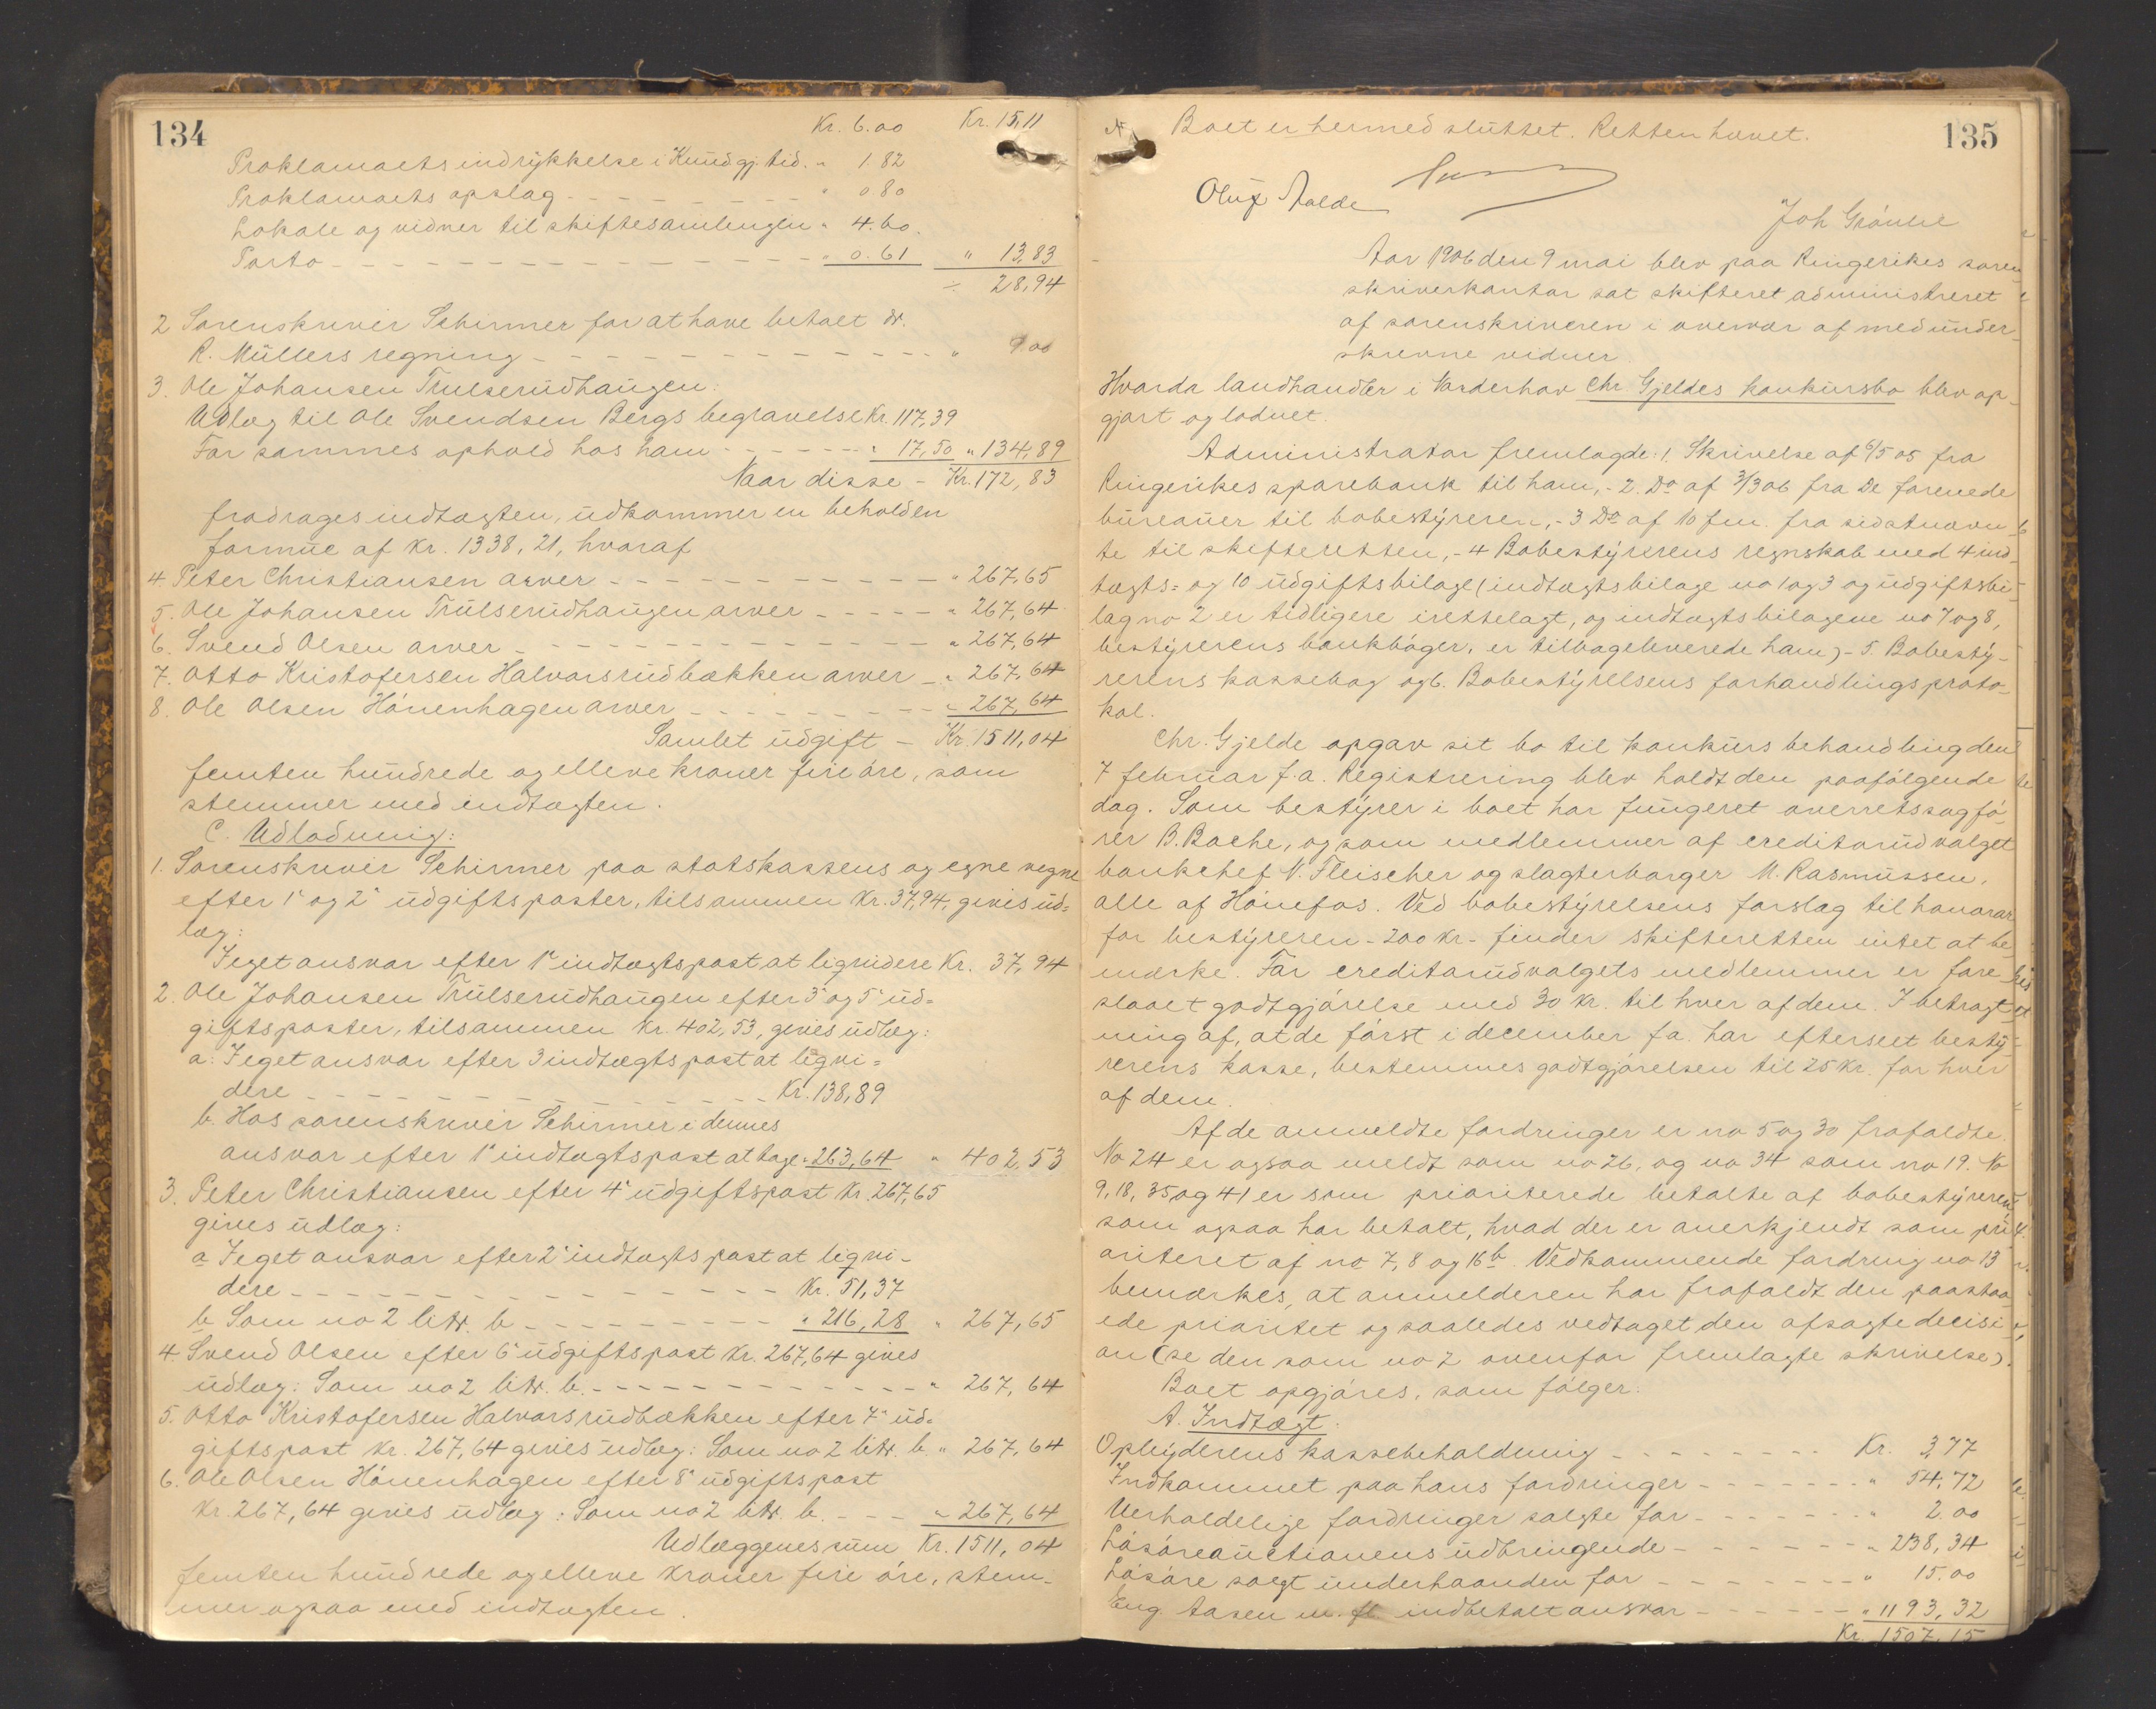 134
Kr. 6.00 Kr. 15,11
Proklamaets indrykkelse i Kundgj. tid. " 1.82
Proklamaets opslag " 0.80
Lokale og vidner til skiftesamlingen " 4.60.
Porto " 0.61 " 13,83
÷ 28,94
2 Sorenskriver Schirmer for at have betalt dr.
R. Müllers regning " 9.00
3. Ole Johansen Trulserudhaugen:
Udlæg til Ole Svendsen Bergs begravelse Kr. 117,39
For sammes ophold hos ham " 17,50 " 134,89
Naar disse - Kr. 172,83
fradrages indtægten, udkommer en beholden
formue af Kr. 1338,21, hvoraf
4. Peter Christiansen arver " 267,65
5. Ole Johansen Trulserudhaugen arver " 267,64
6. Svend Olsen arver " 267,64
7. Otto Kristofersen Halvorsrudbækken arver " 267,64
8. Ole Olsen Hónenhagen arver " 267,64
Samlet udgift - Kr. 1511,04
femten hundrede og elleve kroner fire óre, som
stemmer med indtægten.
C. Udlodning:
1. Sorenskriver Schirmer paa statskassens og egne vegne
efter 1' og 2' udgiftsposter, tilsammen Kr. 37,94, gives ud=
læg:
I eget ansvar efter 1' indtægtspost at ligvidere Kr. 37,94
2. Ole Johansen Trulserudhaugen efter 3' og 5' ud=
giftsposter, tilsammen Kr. 402,53, gives udlæg:
a. I eget ansvar efter 3 indtægtspost at ligvi=
dere Kr. 138,89
b. Hos sorenskriver Schirmer i dennes
ansvar efter 1' indtægtspost at tage " 263,64 " 402,53
3. Peter Christiansen efter 4' udgiftspost Kr. 267,65
gives udlæg:
a I eget ansvar efter 2' indtægtspost at ligvi-
dere Kr. 51,37
b Som no 2 litr. b " 216,28 " 267,65
4. Svend Olsen efter 6' udgiftspost Kr. 267,64 gives
udlæg: Som no 2 litr. b. " 267,64
5. Otto Kristofersen Halvorsrudbækken efter 7' ud=
giftspost Kr. 267,64 gives udlæg: Som no 2 litr. b. " 267,64
6. Ole Olsen Hónenhagen efter 8' udgiftspost
Kr. 267,64 gives udlæg: Som no 2 litr. b. " 267,64
Udlæggenes sum Kr. 1511,04
femten hundrede og elleve kroner fire óre, stem-
mer ogsaa med indtægten.
135
Boet er hermed sluttet. Retten hævet.
Oluf Aalde
Joh Grónlie
Aar 1906 den 9 mai blev paa Ringerikes soren
skriverkontor sat skifteret administreret
af sorenskriveren i overvær af medunder
skrevne vidner.
Hvorda landhandler i Norderhov Chr Gjeldes konkursbo blev op-
gjort og lodnet.
Administrator fremlagde: 1. Skrivelse af 6/5 05 fra
Ringerikes sparebank til ham, - 2. Do af 3/3 06 fra De forenede
bureauer til bobestyreren, - 3 Do af 10 jan. fra sidstnævn
te til skifteretten, - 4 Bobestyrerens regnskab med 4 ind
tægts= og 10 udgiftsbilage (indtægtsbilage no 1 og 3 og udgiftsbi-
lag no 2 er tidligere irettelagt, og indtægtsbilagene no 7 og 8,
bestyrerens bankbóger, er tilbageleverede ham) - 5. Bobesty-
rerens kassebog og 6. Bobestyrelsens forhandlingsproto-
kol.
Chr. Gjelde opgav sit bo til konkursbehandling den
7 februar f.a. Registrering blev holdt den paafólgende
dag. Som bestyrer i boet har fungeret overretssagfó
rer B. Bache, og som medlemmer af creditorudvalget
bankchef N. Fleischer og slagterborger M. Rasmussen,
alle af Hónefos. Ved bobestyrelsens forslag til honorar
for bestyreren - 200 Kr. - finder skifteretten intet at be
mærke. For creditorudvalgets medlemmer er fore
slaaet godtgjórelse med 30 Kr. til hver af dem. I betragt
ning af, at de fórst i december f.a. har efterseet besty-
rerens kasse, bestemmes godtgjórelsen til 25 Kr. for hver
af dem.
Af de anmeldte fordringer er no 5 og 30 frafaldte.
No 24 er ogsaa meldt som no 26, og no 34 som no 19. No
9, 18, 35, og 41 er som prioriterede betalte af bobestyreren
som ogsaa har betalt, hvad der er anerkjendt som pri
oriteret af no 7, 8 og 16 b. Vedkommende fordring no 13
bemærkes, at anmelderen har frafaldt den paastaa
ede prioritet og saaledes vedtaget den afsagte decisi
on (se den som no 2 ovenfor fremlagte skrivelse).
Boet opgjóres, som fólger:
A. Indtægt.
Opbyderens kassebeholdning Kr. 3,77
Indkommet paa hans fordringer " 54,72
Uerholdelige fordringer solgte for " 2.00
Lósóreauctionens udbringende " 238,34
Lósóre solgt underhaanden for " 15.00
Eng. Aasen m. fl. indbetalt ansvar " 1193,32
Kr. 1507,15